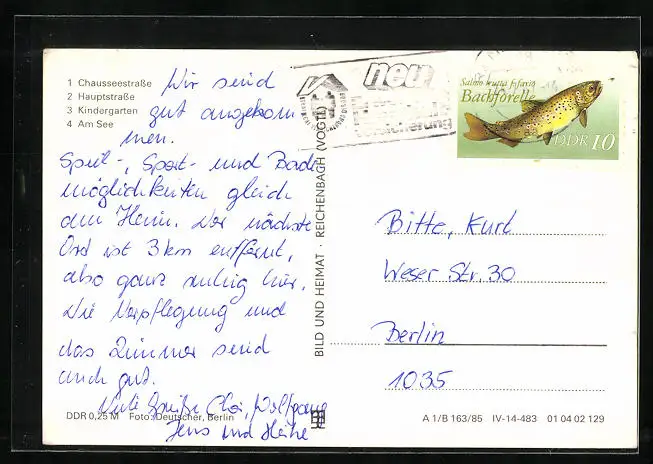 1 Chausseestraße
2 Hauptstraße
3 Kindergarten
4 Am See
Wir sind
gut angekom
men.
Spiel-, Sport- und Bade
möglichkeiten gleich
am Heim. Der nächste
Ort ist 3 km entfernt,
also ganz ruhig hier.
Die Verpflegung und
das Zimmer sind
auch gut.
Viele Grüße Wolfgang
Jens und Heike
DDR 0,25 M Foto: Deutscher, Berlin
BILD UND HEIMAT · REICHENBACH (VOGTL)
neu
versicherung
Salmo trutta f. fario
Bachforelle
DDR 10
Bitte, Kurt
Weser Str. 30
Berlin
1035
A 1/B 163/85 IV-14-483 01 04 02 129